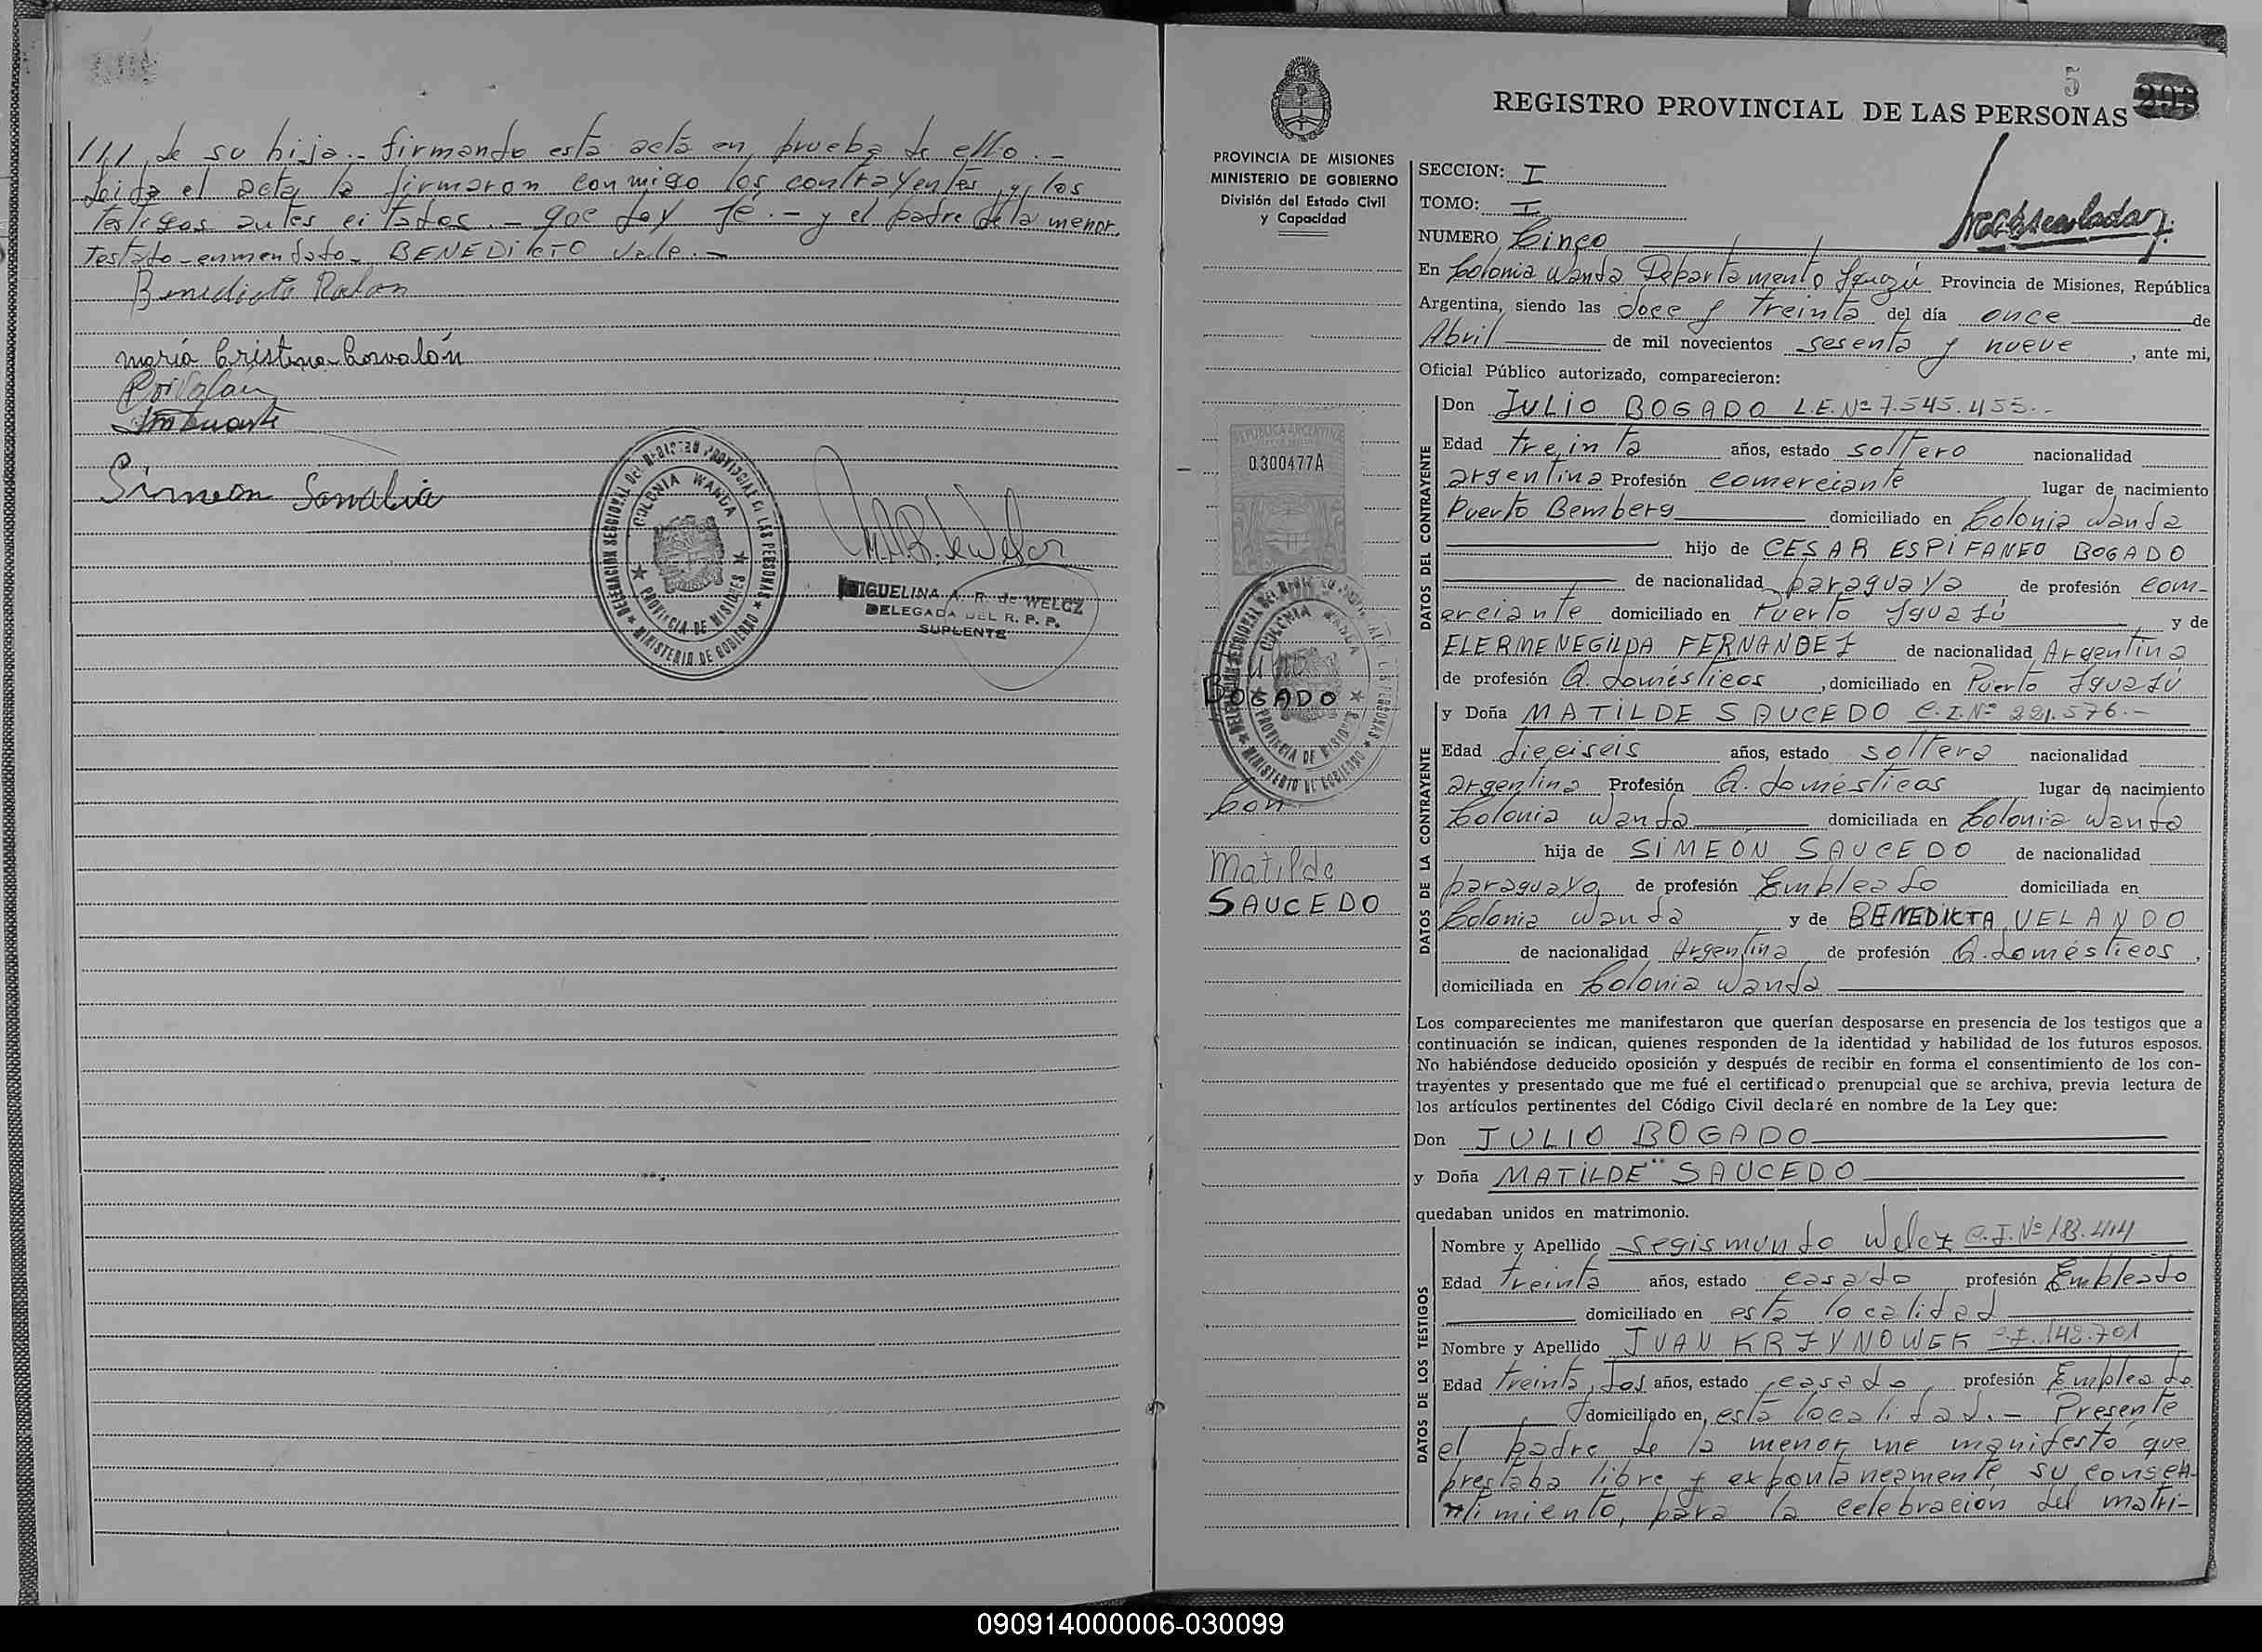 /// de su hija.- firmando esta acta en prueba de ello.-
Leida el acta la firmaron conmigo los contrayentes, y los
testigos antes citados.- que doy fé.- y el padre de la menor.
Testado-enmendado- BENEDICTO Vale.-
Benedicto
maría Cristina Corvalón
Simeon
DELEGACION SECCIONAL DEL REGISTRO PROVINCIAL DE LAS PERSONAS
COLONIA WANDA
PROVINCIA DE MISIONES
MINISTERIO DE GOBIERNO
MIGUELINA A. R. de WELCZ
DELEGADA DEL R. P. P.
SUPLENTE
5
293
REGISTRO PROVINCIAL DE LAS PERSONAS
PROVINCIA DE MISIONES
MINISTERIO DE GOBIERNO
División del Estado Civil
y Capacidad
REPUBLICA ARGENTINA
0300477A
BOGADO
Con
Matilde
SAUCEDO
SECCION: I
TOMO: I
NUMERO Cinco
En Colonia Wanda Departamento Iguazú Provincia de Misiones, República
Argentina, siendo las doce y treinta del día once de
Abril de mil novecientos sesenta y nueve, ante mi,
Oficial Público autorizado, comparecieron:
DATOS DEL CONTRAYENTE
Don JULIO BOGADO L.E.Nº 7.545.455.-
Edad treinta años, estado soltero nacionalidad
argentina Profesión comerciante lugar de nacimiento
Puerto Bemberg domiciliado en Colonia Wanda
hijo de CESAR ESPIFANEO BOGADO
de nacionalidad paraguaya de profesión com-
erciante domiciliado en Puerto Iguazú y de
ELERMENEGILDA FERNANDEZ de nacionalidad Argentina
de profesión Q. domésticos, domiciliado en Puerto Iguazú
DATOS DE LA CONTRAYENTE
y Doña MATILDE SAUCEDO C.I.Nº 221.576.-
Edad dieciseis años, estado soltera nacionalidad
argentina Profesión Q. domésticos lugar de nacimiento
Colonia Wanda domiciliada en Colonia Wanda
hija de SIMEÓN SAUCEDO de nacionalidad
paraguaya de profesión Empleado domiciliada en
Colonia Wanda y de BENEDICTA VELANDO
de nacionalidad Argentina de profesión Q. domésticos,
domiciliada en Colonia Wanda
Los comparecientes me manifestaron que querían desposarse en presencia de los testigos que a
continuación se indican, quienes responden de la identidad y habilidad de los futuros esposos.
No habiéndose deducido oposición y después de recibir en forma el consentimiento de los con-
trayentes y presentado que me fué el certificado prenupcial que se archiva, previa lectura de
los artículos pertinentes del Código Civil declaré en nombre de la Ley que:
Don JULIO BOGADO
y Doña MATILDE SAUCEDO
quedaban unidos en matrimonio.
DATOS DE LOS TESTIGOS
Nombre y Apellido Segismundo Welcz C.I.Nº 183.414
Edad treinta años, estado casado profesión Empleado
domiciliado en esta localidad
Nombre y Apellido JUAN KRZYNOWEK C.I. 148.701
Edad treinta y dos años, estado casado profesión Empleado
domiciliado en esta localidad.- Presente
el padre de la menor me manifestó que
prestaba libre y expontaneamente su consen-
timiento, para la celebración del matri-
090914000006-030099